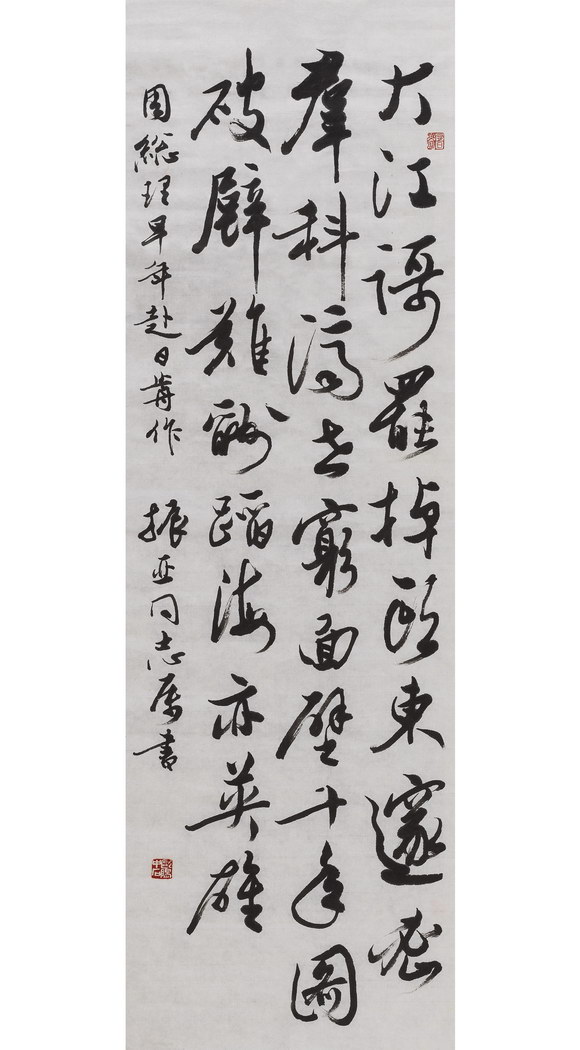 大江謌罷掉頭東邃密
羣科濟世窮面壁十年圖
破壁難酬蹈海亦英雄
周総理早年赴日舊作 振亚同志属書